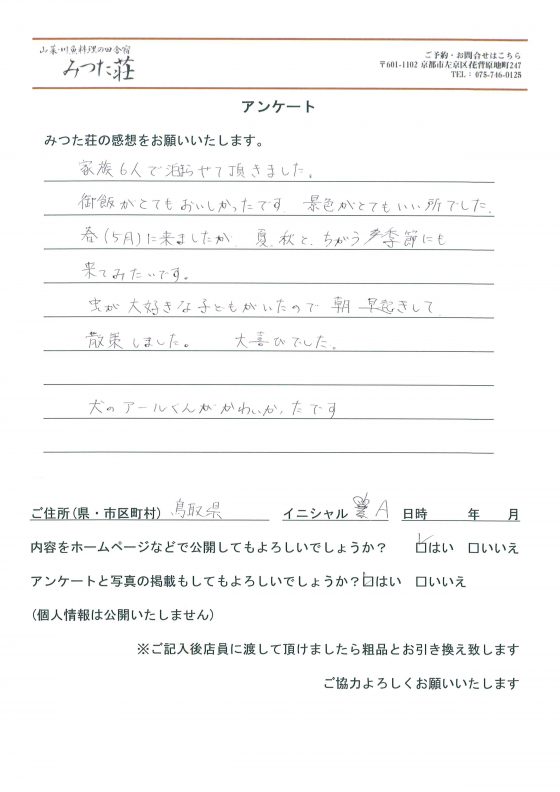 山菜・川魚料理の田舎宿
みつた荘
ご予約・お問合せはこちら
〒601-1102 京都市左京区花脊原地町247
TEL：075-746-0125
アンケート
みつた荘の感想をお願いいたします。
家族6人で泊らせて頂きました。
御飯がとてもおいしかったです 景色がとてもいい所でした。
春(5月)に来ましたが、夏、秋と、ちがう季節にも
来てみたいです。
虫が大好きな子どもがいたので 朝 早起きして
散策しました。 大喜びでした。
犬のアールくんがかわいかったです
ご住所(県・市区町村) 鳥取県 イニシャル A 日時 年 月
内容をホームページなどで公開してもよろしいでしょうか？ □はい □いいえ
アンケートと写真の掲載もしてもよろしいでしょうか？□はい □いいえ
(個人情報は公開いたしません)
※ご記入後店員に渡して頂けましたら粗品とお引き換え致します
ご協力よろしくお願いいたします